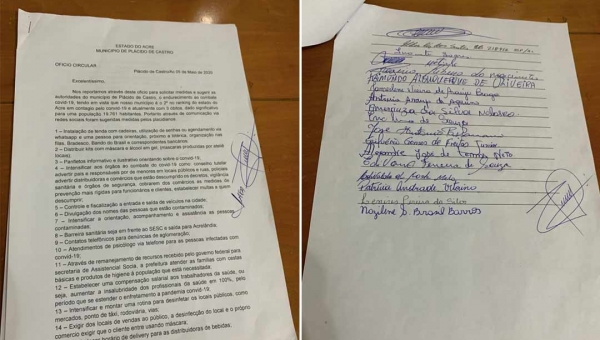 ESTADO DO ACRE
MUNICÍPIO DE PLÁCIDO DE CASTRO
OFÍCIO CIRCULAR
Plácido de Castro/Ac 05 de Maio de 2020
Excelentíssimo,
Nos reportamos através deste oficio para solicitar medidas e sugerir as
autoridades do município de Plácido de Castro, o endurecimento ao combate
covid-19, tendo em vista que nosso município é o 3º no ranking do estado do
Acre em contágio pelo convid-19 e atualmente com 3 óbitos,
para uma população 19.761 habitantes. Portanto através de comunicação via
redes sociais foram sugeridas medidas pelos placidianos:
1 – Instalação da tenda com cadeiras, utilização de senhas ou agendamento via
whatsapp e uma pessoa para orientação, próximo a lotérica, organização nas
filas, Bradesco, Bando do Brasil e correspondentes bancários;
2 – Distribuir kits com máscara e álcool em gel; (mascaras produzidas por ateliê
locais)
3 - Panfletos informativo e ilustrativo orientando sobre o convid-19;
4 – Intensificar aos órgãos ao combate do covid-19 como: conselho tutelar
advertir para a responsáveis por de menores em locais públicos e ruas, policiais
advertir distribuidoras e comércios que estão descumprindo os decretos, vigilância
sanitária e órgãos de segurança, cobrarem dos comércios as medidas de
prevenção mais rígidas para funcionários e clientes, estabelecer multas a quem
descumprir;
5 – Controle e fiscalização a entrada e saída de veículos na cidade;
6 – Divulgação dos nomes das pessoas que estão contaminados;
7 – Intensificar a orientação, acompanhamento e assistência as pessoas
contaminadas;
8 – Barreira sanitária seja em frente ao SESC e saída para Acrelândia;
9 – Contatos telefônicos para denúncias de aglomeração;
10 – Atendimentos de psicólogo via telefone para as pessoas infectadas com
convid-19;
11 – Através de remanejamento de recursos recebido pelo governo federal para
secretaria de Assistencial Socia, a prefeitura atender as famílias com cestas
básicas e produtos de higiene à população que está necessitada;
12 – Estabelecer uma compensação salarial aos trabalhadores da saúde, ou
seja, aumentar a insalubridade dos profissionais da saúde em 100%, pelo
período que se estender o enfrentamento a pandemia covid-19;
13 – Intensificar e montar uma rotina para desinfetar os locais públicos, como
mercados, ponto de táxi, rodoviária, vias;
14 – Exigir dos locais de vendas ao público, a desinfecção do local e o próprio
comercio exigir que o cliente entre usando máscara;
horário de delivery para as distribuidoras de bebidas;
ARMANDO ALBUQUERQUE DE OLIVEIRA
Antonia Araujo de Aquino
da Silva
Lima de Souza
José Antonio
Gomes de Freitas Junior
Alexandre
Edilvane Ferreira de Souza
Patrícia Andrade
Pereira da Silva
Nazilene S. Brasil Barros